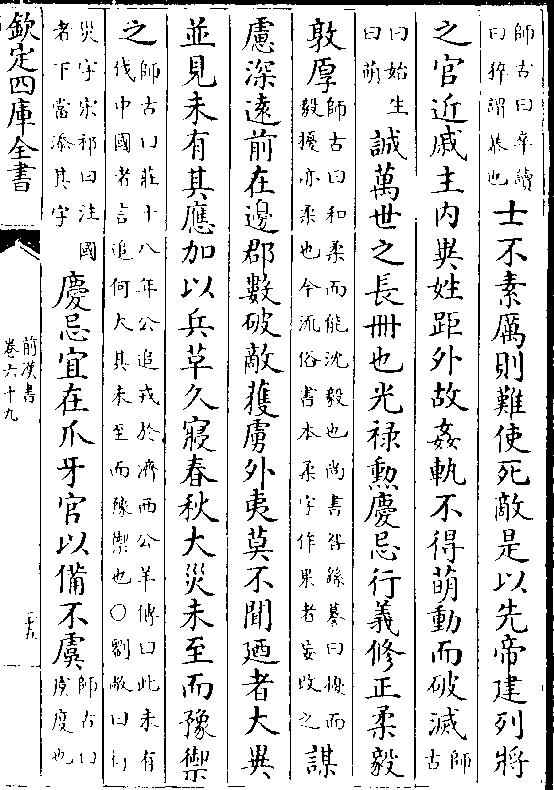 師古曰卒讀
曰猝謂暴也
士不素厲則難使死敵是以先帝建列將
之官近戚主内異姓距外故姦軌不得萌動而破滅
師
古
曰始生
曰萌
誠萬世之長冊也光禄勲慶忌行義修正柔毅
敦厚
師古曰和柔而能沈毅也尚書咎繇謩曰擾而
毅擾亦柔也今流俗書本柔字作果者妄改之
謀
慮深遠前在邊郡數破敵獲虜外夷莫不聞廼者大異
並見未有其應加以兵革久寢春秋大災未至而豫禦
之
師古曰莊十八年公追戎於濟西公羊傳曰此未有
伐中國者言追何大其未至而豫禦也○劉敞曰衍
災字宋祁曰注國
者下當添其字
慶忌宜在爪牙官以備不虞
師古曰
虞度也
欽定四庫全書
前漢書
卷六十九